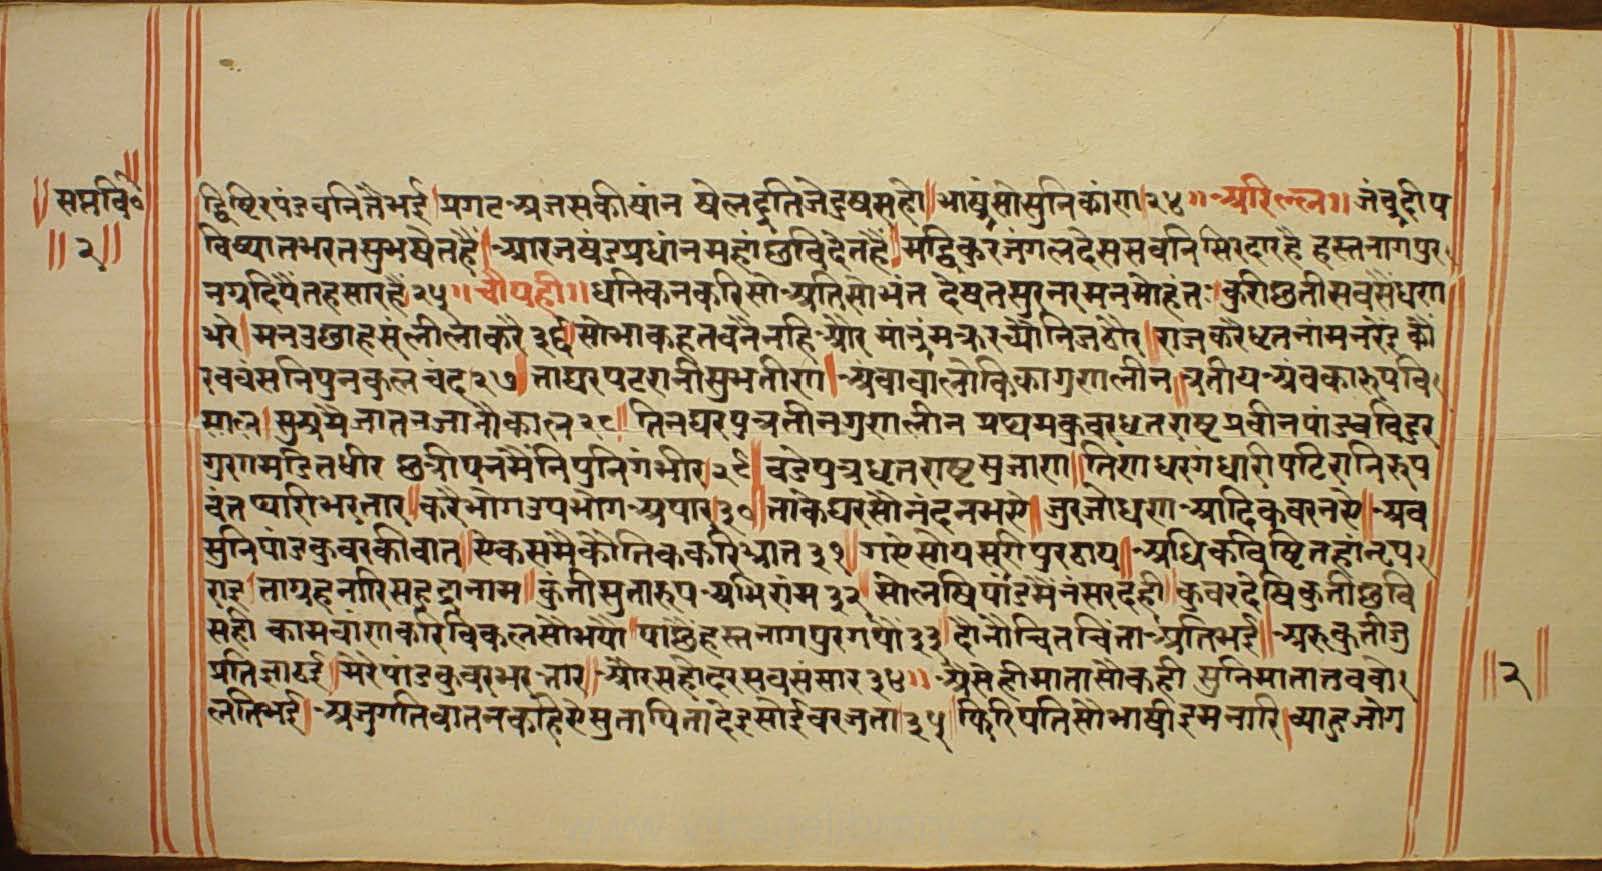 सप्तवि॰
॥२॥
द्धिष्टिरपंडवनितैभई प्रगट अजसकीषांन षेलदुतिजेदुषसहो॥भाषुंसोसुनिकांण।२४॥अरिल्ल॥जंबुद्वीप
विष्यातभरतसुभषेतहै॥आरजषंडप्रधांनमहांछविदेतहै॥मद्धिकुरजंगलदेससबनिसिरदारहै हस्तनागपुर
नग्रदिपैतहसारहै।२५॥चौपही॥धनिकनकरिसो अतिसोभंत देषतसुरनरमनमोहंत॥कुरीछतीसवसैंधण
भरे।मनउछाहसुंलीलाकरै२६॥सोभाकहतबनैनहिऔर मांनुंमऊरच्यौनिजठौर॥राजकरैधृतनांमनरेंद कौ
रववंसनिपुनकुलचंद२७॥ताघरपटरानीसुभतीण॥अंबाबालोकिकागुणलीन॥त्रतीयअंबकारुपवि
साल॥सुषमैजातनजानौकाल२८॥तिनघरपुत्रतीनगुणलीन प्रथमकुवरधृतराष्टप्रवीनपांडवविदुर
गुणमंडितधीर छत्रीपनमैंनिपुनिगंभीर।२९॥वडेपुत्रधृतराष्टसुजाण॥तिणघरगंधारीपटिरानिरुप
वंतप्यारीभरतार॥करैभोगउपभोगअपार३०॥ताकेघरसौनंदनभए॥जुरजोधणआदिकवरनए॥अब
सुनिपांडकुवरकीबात॥एकसमैकौतिककरिभ्रात३१॥गएसौयसुरीपुरठाय॥अधिकविष्टितहांनृप
राउ।ताग्रहनारिसहद्रानाम॥कुंतीसुतारुपअभिरांम३२॥सोलषिपांडमैंनंसरदही॥कुवरदेषिकुतीछवि
सही कामबांणकरिविकलसोभयौ॥पाछैंहस्तनागपुरगयौ३३॥दौनौंचितचिंताअतिभई॥अरुकुतीजु
प्रतिज्ञाठई॥मेरेपांडवकुवरभरतार॥औरसहोदरसबसंसार३४॥ऐसेहीमातासौकही सुनिमातातबबो
लतिभई॥अजुगतिबातनकहिएसुतापितादेइसोईवरजुता।३५॥फिरिपतिसौभाषीइमनारि॥व्याहजोग
॥२॥